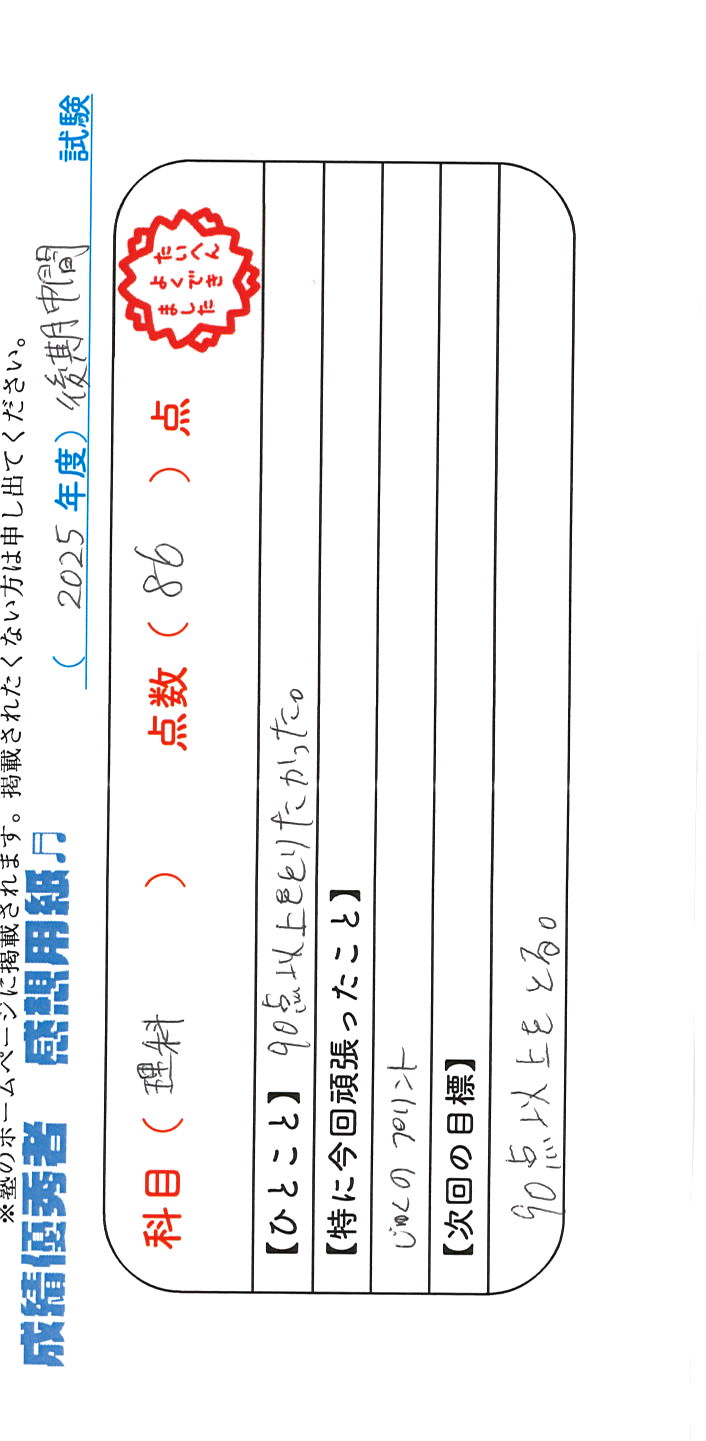 ※塾のホームページに掲載されます。掲載されたくない方は申し出てください。
成績優秀者 感想用紙♬
( 2025 年度) 後期中間 試験
科目 ( 理科 ) 点数 ( 86 ) 点
たいへん
よくでき
ました
【ひとこと】 90点以上をとりたかった。
【特に今回頑張ったこと】
じゅくのプリント
【次回の目標】
90点以上をとる。